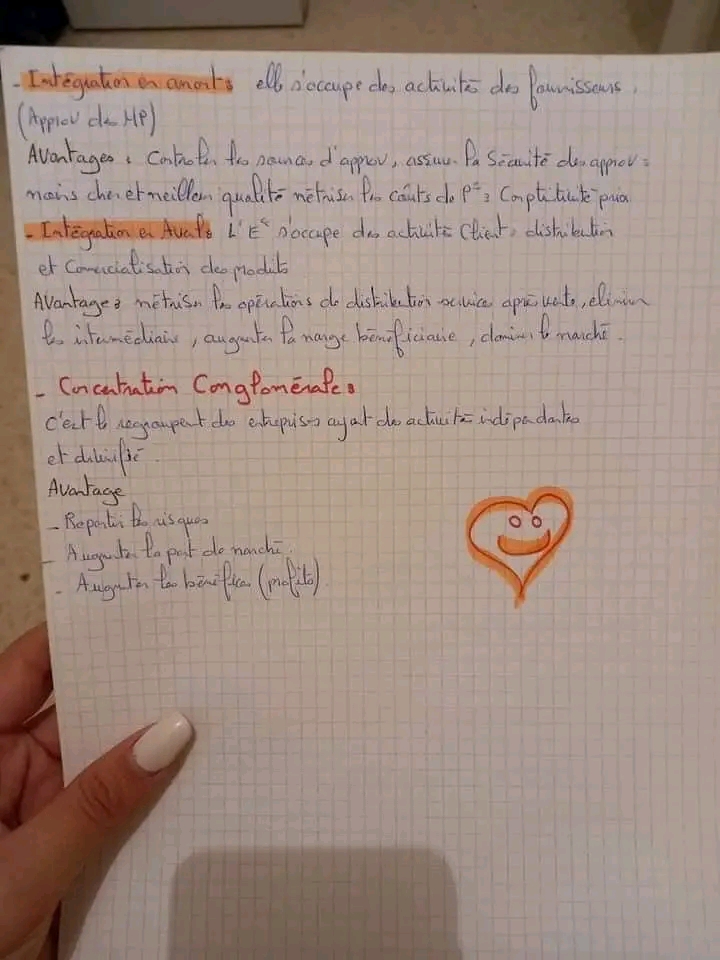 - Intégration en amont : elle s'occupe des activités des fournisseurs.
(Approv des MP)
Avantages : Controler les sources d'approv, assurer la Sécurité des approv :
moins cher et meilleur qualité métriser les coûts de P° : Comptitivité prix
- Intégration en Aval : L'Eˢᵉ s'occupe des activité Client : distribution
et Comercialisation des produits
Avantage : métriser les opérations de distribution service après vente, eliminer
les intermédiaire, augmenter la marge bénéficiaire, dominer le marché.
- Concentration Conglomérale :
c'est le regroupent des entreprises ayat des activité indépendantes
et diversifié.
Avantage
- Repartir les risques
- Augmenter la part de marché.
- Augmenter les bénéfices (profits)